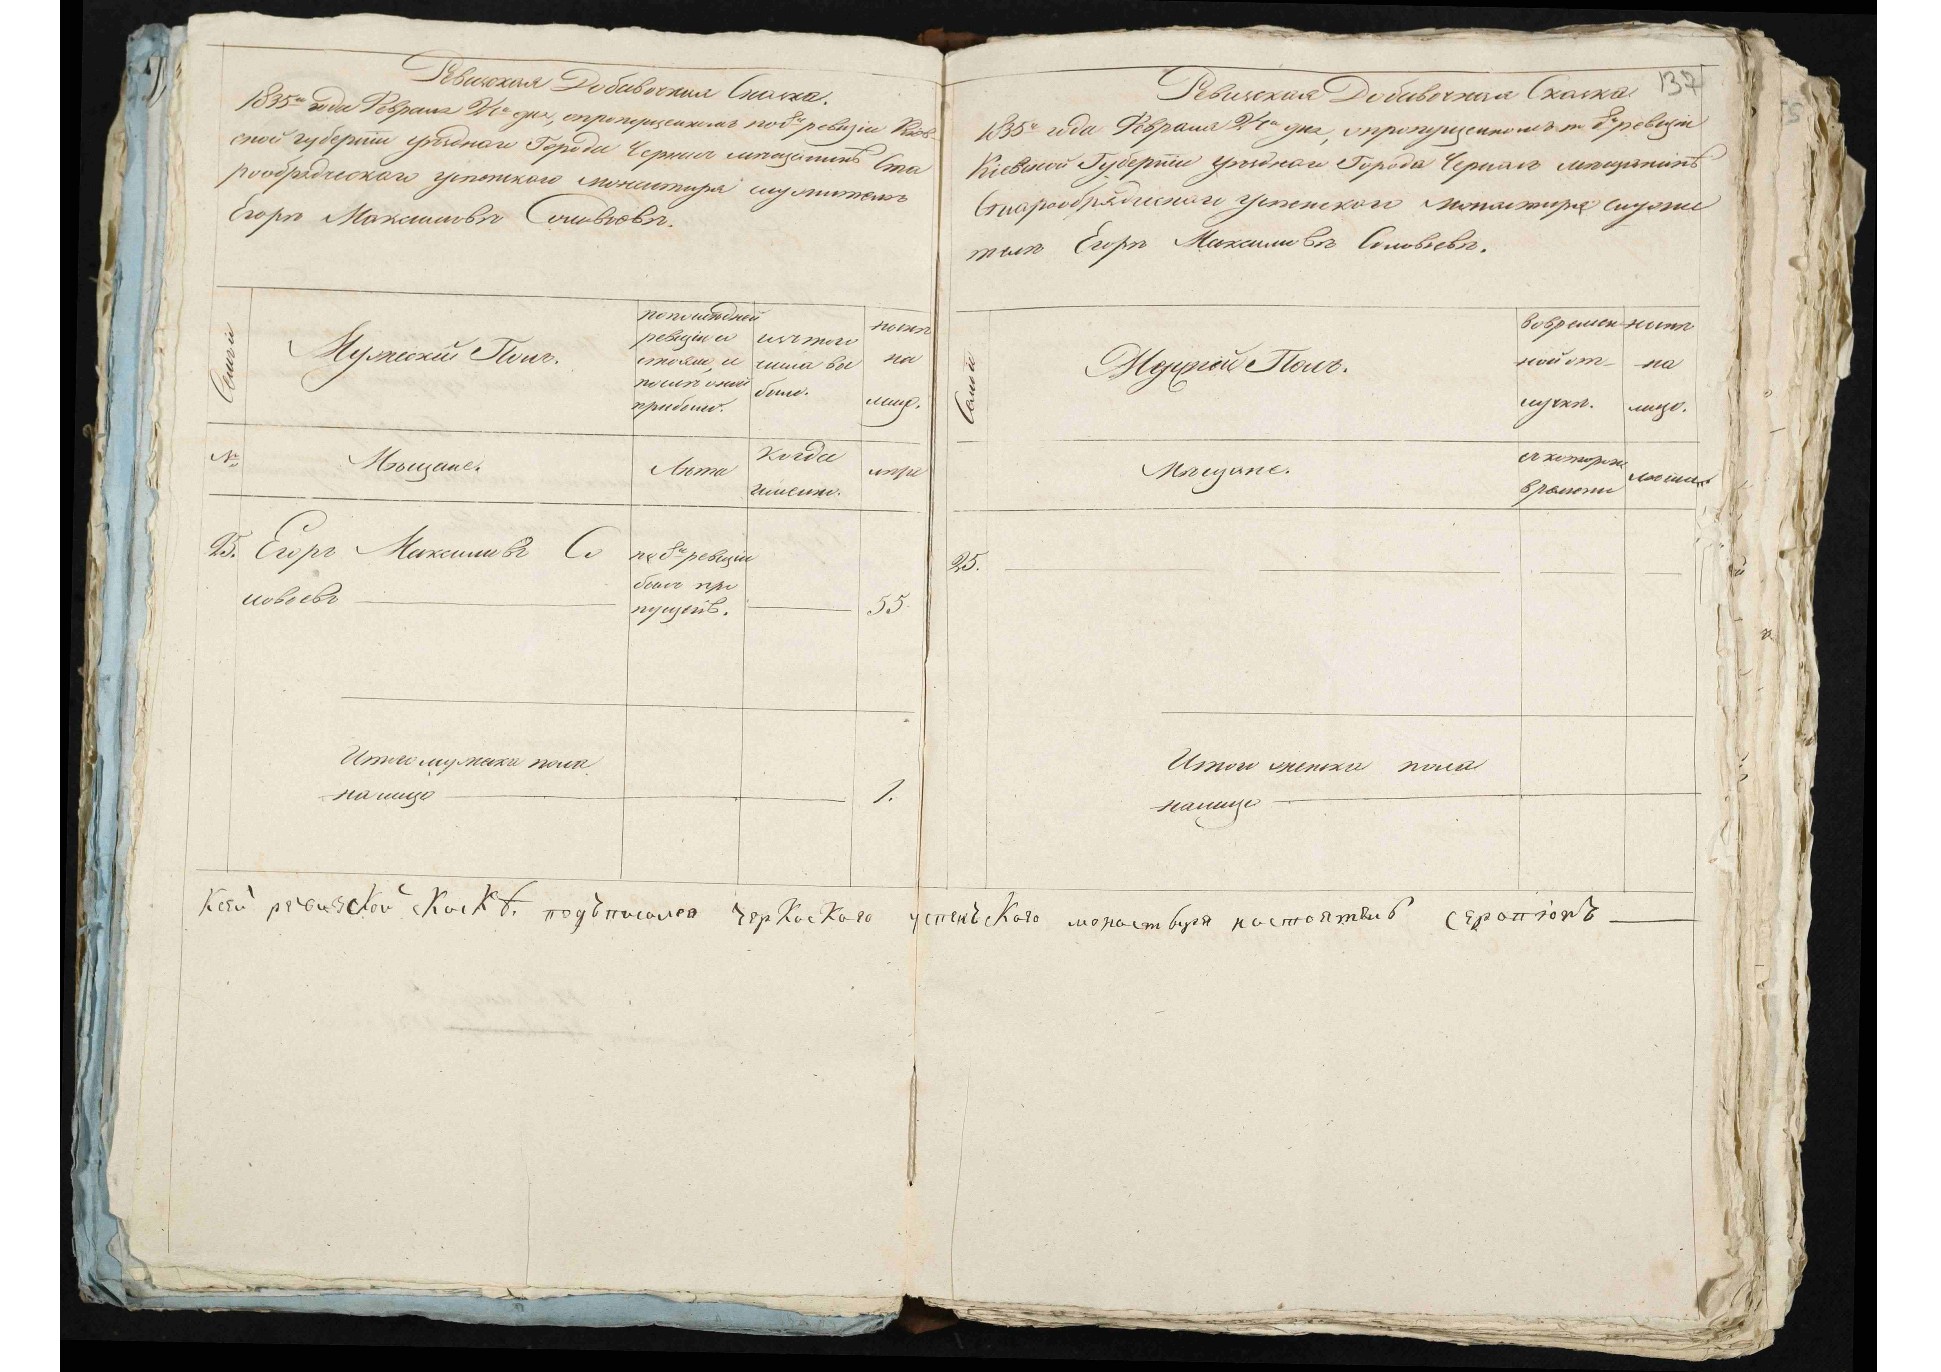 Ревизская Добавочная Сказка.
1835го года Февраля 21го дня, о пропущенномъ по 8й ревизiи Кiев-
ской губернiи уѣзднаго Города Черкасъ мѣщанинѣ Ста
рообрядческаго успенского монастыря служителѣ
Егорѣ Максимовѣ Соловьевѣ.
Семьи
Мужескiй Полъ.
по последней
ревизiи со
стояло, и
послѣ оной
прибыло.
изъ того
числа вы
было.
нынѣ
на
лицо.
№
Мѣщане.
Лѣта
Когда
именно.
лѣта
25. Егоръ Максимовъ Со
ловьевъ
по 8й ревизiи
былъ про
пущенъ.
55
Итого мужеска пола
на лицо
1.
137
Ревизская Добавочная Сказка
1835го года Февраля 21го дня, о пропущенномъ по 8й ревизiи
Кiевской Губернiи уѣзднаго Города Черкасъ мѣщанинѣ
Старообрядческаго успенского монастыря служи
телѣ Егорѣ Максимовѣ Соловьевѣ.
Семьи
Женской Полъ.
во времен-
ной от-
лучкѣ.
нынѣ
на
лицо.
Мѣщане.
съ которого
времени
25.
Итого женска пола
на лицо
Ксей ревизской скаскѣ. подъписался Черкаскаго успенъскаго монастыря настоятель серапiонъ